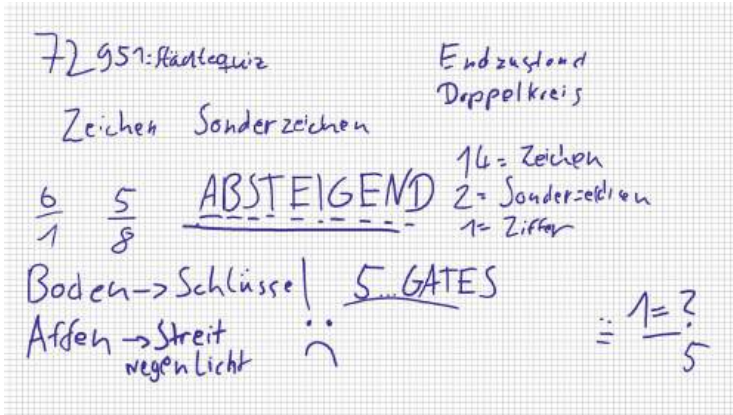 72951: Städtequiz
Endzustand
Doppelkreis
Zeichen Sonderzeichen
14 = Zeichen
2 = Sonderzeichen
1 = Ziffer
6/1 5/8 ABSTEIGEND
Boden -> Schlüssel ! 5..GATES
Affen -> Streit
wegen Licht
= 1 = ?
5